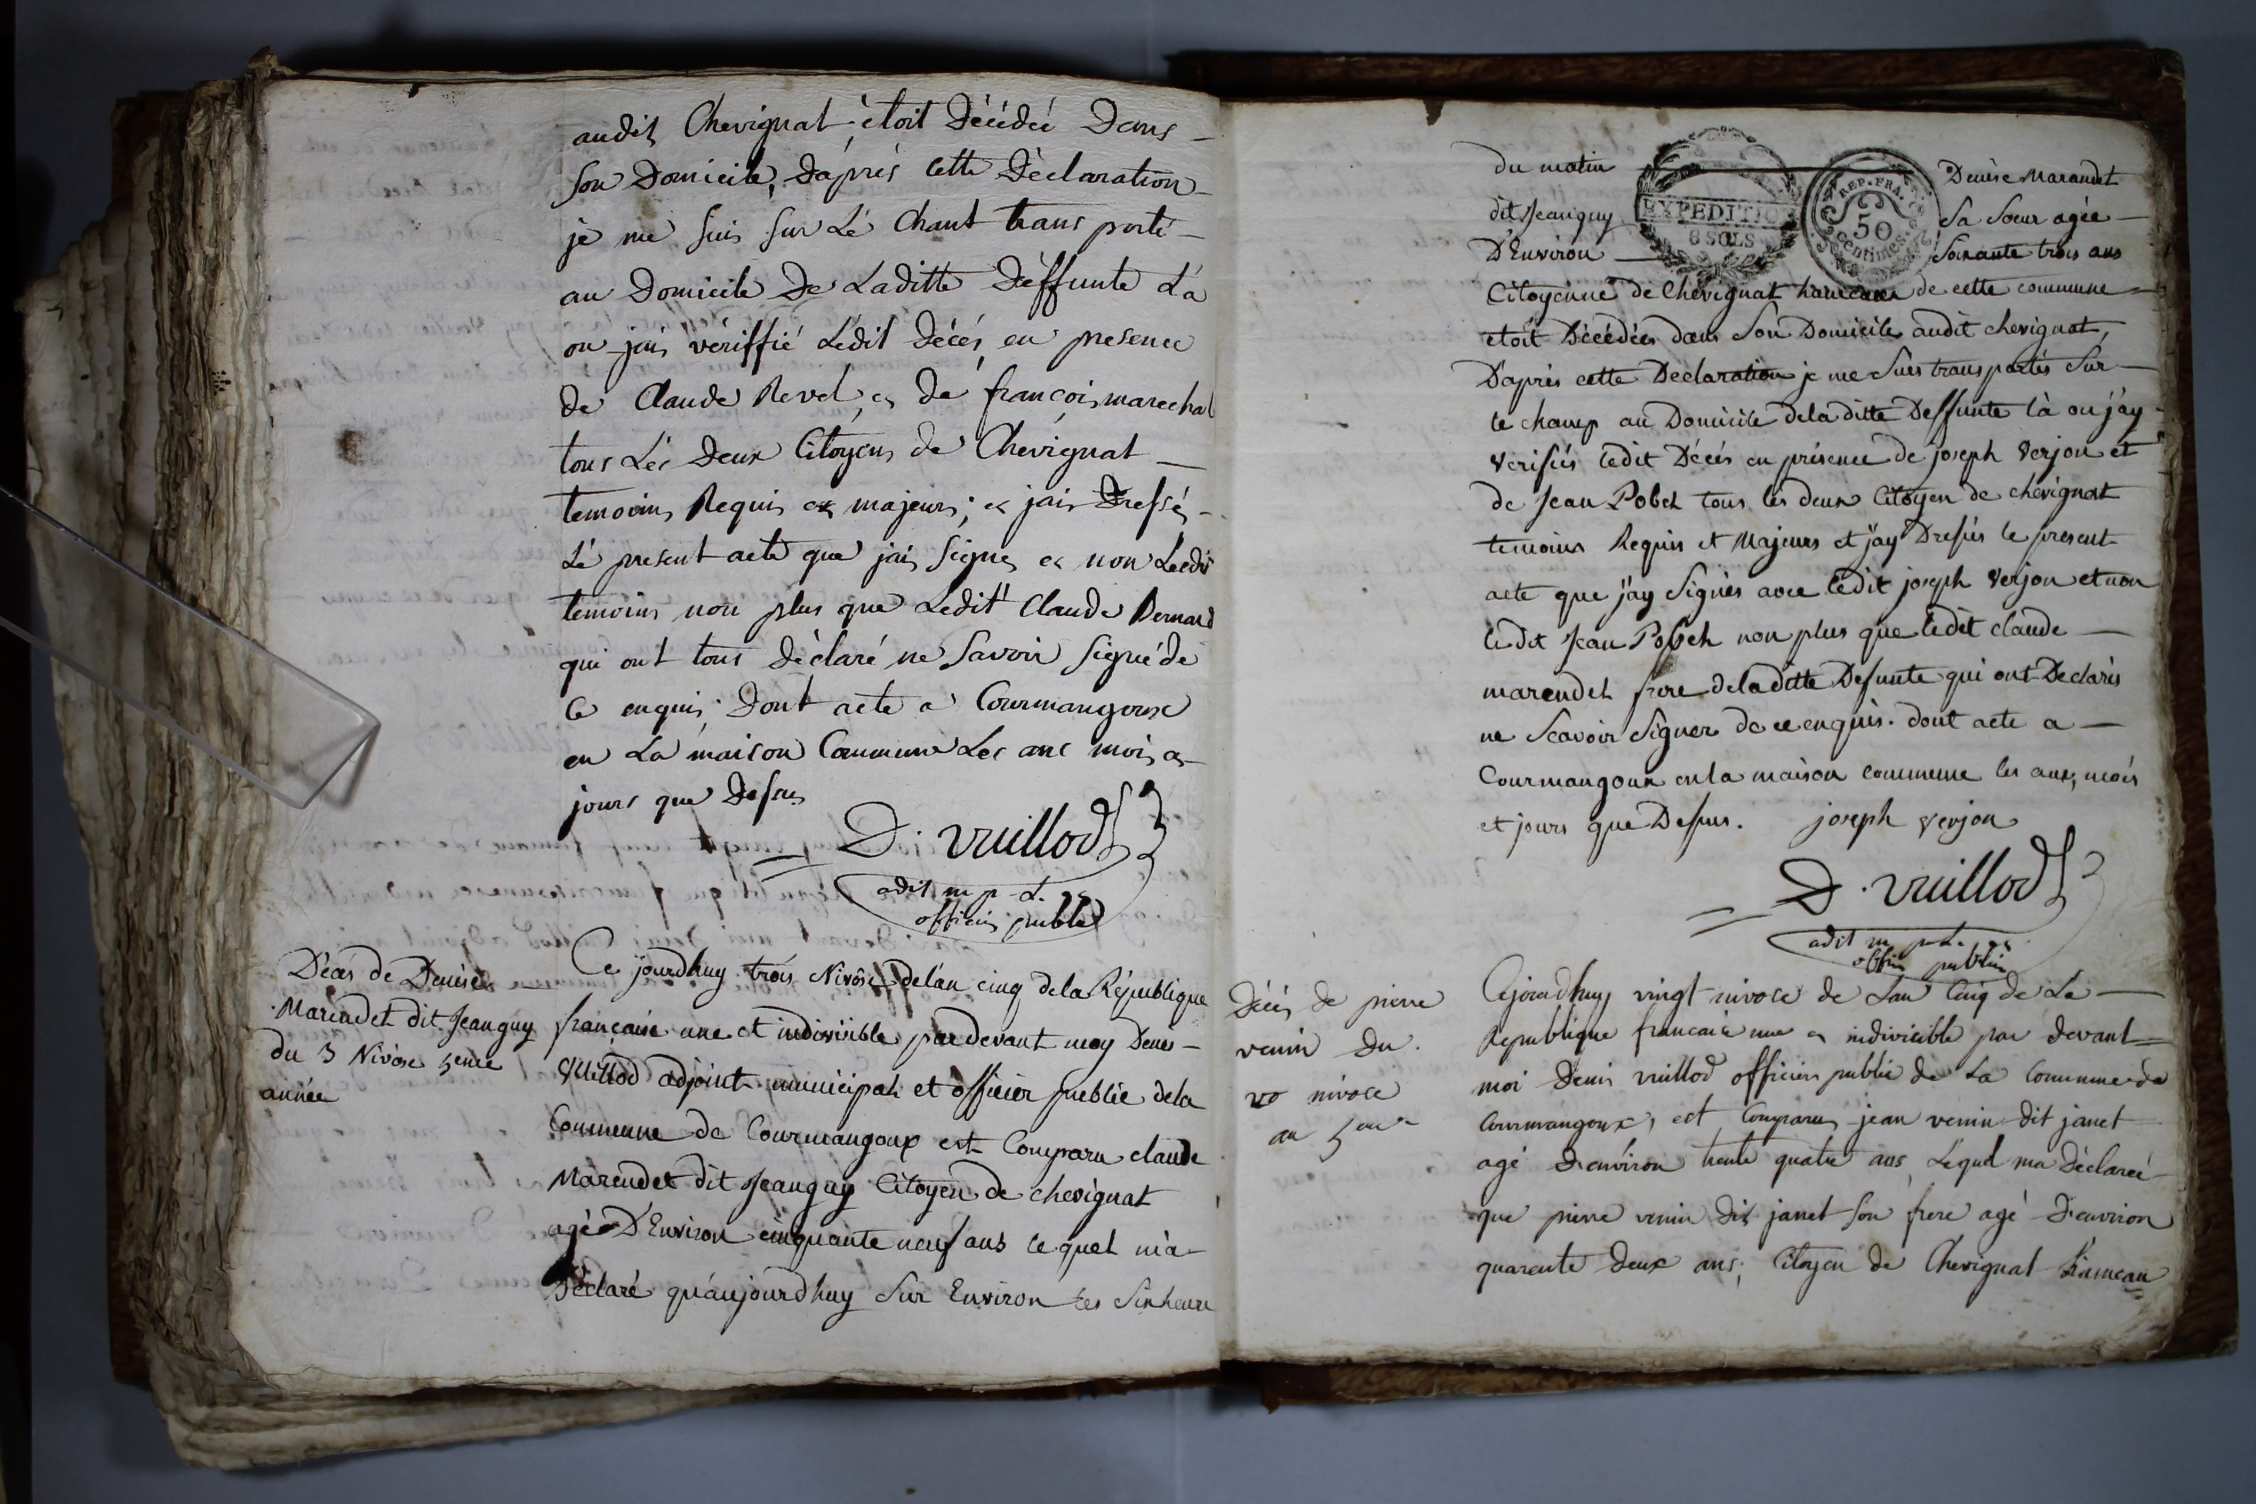 audit Chevignat étoit Décédée Dans
son Domicile, D'après cette Déclaration
je me suis sur Lé Chant transporté
au Domicile De Laditte Déffunte Là
ou jais vériffié Lédit Décés en presence
de Claude Revel et dé francois marechal
tous Lés Deux Citoyens de Chevignat
temoins Requis et majeurs; et jais Dressés
Lé present acte que jais signes et non Lesdis
temoins non plus que Ledit Claude Bernard
qui ont tous Déclaré ne Savoir signé de
Ce enquis; Dont acte a Courmangoux
en La maison Commune Les ans mois et
jours que Dessus
D. vuillod
adit m p-L.
officier public
Décés de Denise
Marendet dit Jeanguy
du 3 Nivôse 5eme
année
Ce jourdhuy trois Nivôse delán cinq dela République
française une et indivisible par devant moy Denis
Vuillod adjoint municipal et officier public dela
Commune de Courmangoux est Comparu claude
Marendet dit Jeanguy Citoyen de chevignat
agé D'Environ cinquante neuf ans lequel m'a
Déclaré qu'aujourdhuy Sur Environ les Six heure
du matin Denise Marandet
dit Jeanguy Sa Soeur agée
D'Environ Soixante trois ans
EXPEDITION
6 SOLS
REP. FRA.
50
Centimes
Citoyenne de Chevignat hameau de cette commune
etoit Décédée dans Son Domicile audit chevignat,
D'après cette Declaration je me Suis transportés Sur
le champ au Domicile dela ditte Deffunte là ou j'ay
verifiés ledit Décés en présence de joseph Verjon et
de Jean Pobel tous les deux Citoyen de chevignat
temoins Requis et Majeurs et j'ay Dressés le present
acte que j'ay Signés avec ledit joseph Verjon et non
ledit Jean Pobel non plus que ledit claude
marendet frere dela ditte Defunte qui ont Declarés
ne Scavoir Signer de ce enquis. dont acte a
Courmangoux en la maison commune les ans, mois
et jours que Dessus. joseph verjon
D. vuillod
adit m p-L.
offier public
Décés de pierre
venin du
20 nivose
an 5eme
Cejourdhuy vingt nivose de Lan Cinq de La
Republique francaise une et indivisible par devant
moi Denis vuillod officier public de La Commune de
Courmangoux, est Comparu jean venin dit janet
agé D'environ trente quatre ans Lequel ma Déclareé
que pierre venin Dit janet Son frere agé D'environ
quarente Deux ans; Citoyen de Chevignat hameau